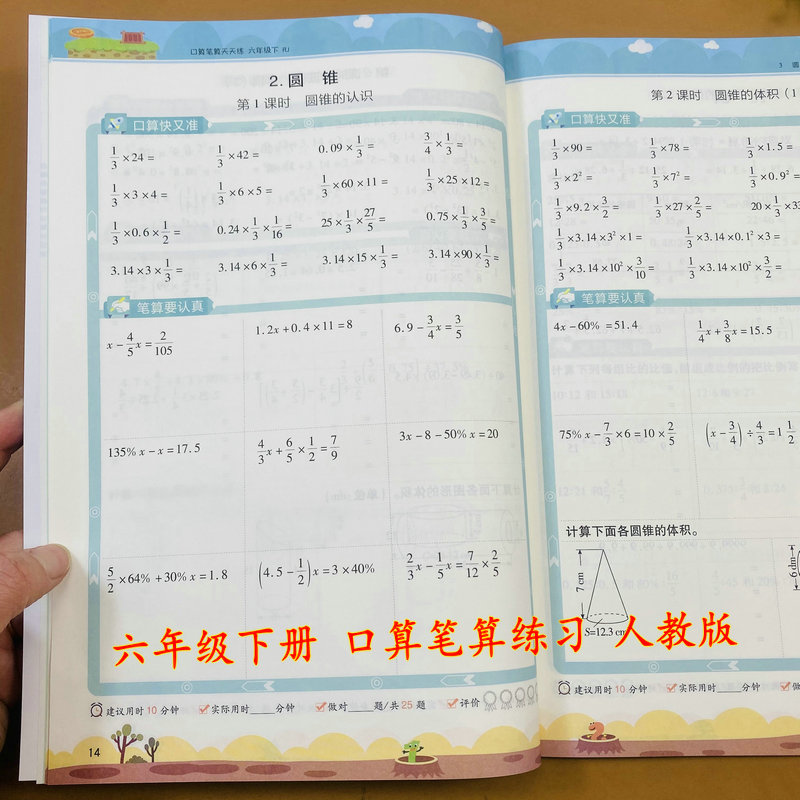 口算笔算天天练 六年级下 RJ
2.圆 锥
第1课时 圆锥的认识
口算快又准
1/3×24= 1/3×42= 0.09×1/3= 3/4×1/3=
1/3×3×4= 1/3×6×5= 1/3×60×11= 1/3×25×12=
1/3×0.6×1/2= 0.24×1/3×1/16= 25×1/3×27/5= 0.75×1/3×3/5=
3.14×3×1/3= 3.14×6×1/3= 3.14×15×1/3= 3.14×90×1/3=
笔算要认真
x-4/5x=2/105 1.2x+0.4×11=8 6.9-3/4x=3/5
135%x-x=17.5 4/3x+6/5×1/2=7/9 3x-8-50%x=20
5/2×64%+30%x=1.8 (4.5-1/2)x=3×40% 2/3x-1/5x=7/12×2/5
建议用时10分钟 实际用时____分钟 做对____题/共25题 评价
14
3 圆
第2课时 圆锥的体积(1
口算快又准
1/3×90= 1/3×78= 1/3×1.5=
1/3×2²= 1/3×7²= 1/3×0.9²=
1/3×9.2×3/2= 1/3×27×2/5= 20×1/3×
1/3×3.14×3²×1= 1/3×3.14×0.1²×3=
1/3×3.14×10²×3/10= 1/3×3.14×10²×3/2=
笔算要认真
4x-60%=51.4 1/4x+3/8x=15.5
75%x-7/3×6=10×2/5 (x-3/4)÷4/3=1 1/2
计算下面各圆锥的体积。
7 cm
S=12.3 cm
6 dm
建议用时10分钟 实际用时____分钟
六年级下册 口算笔算练习 人教版